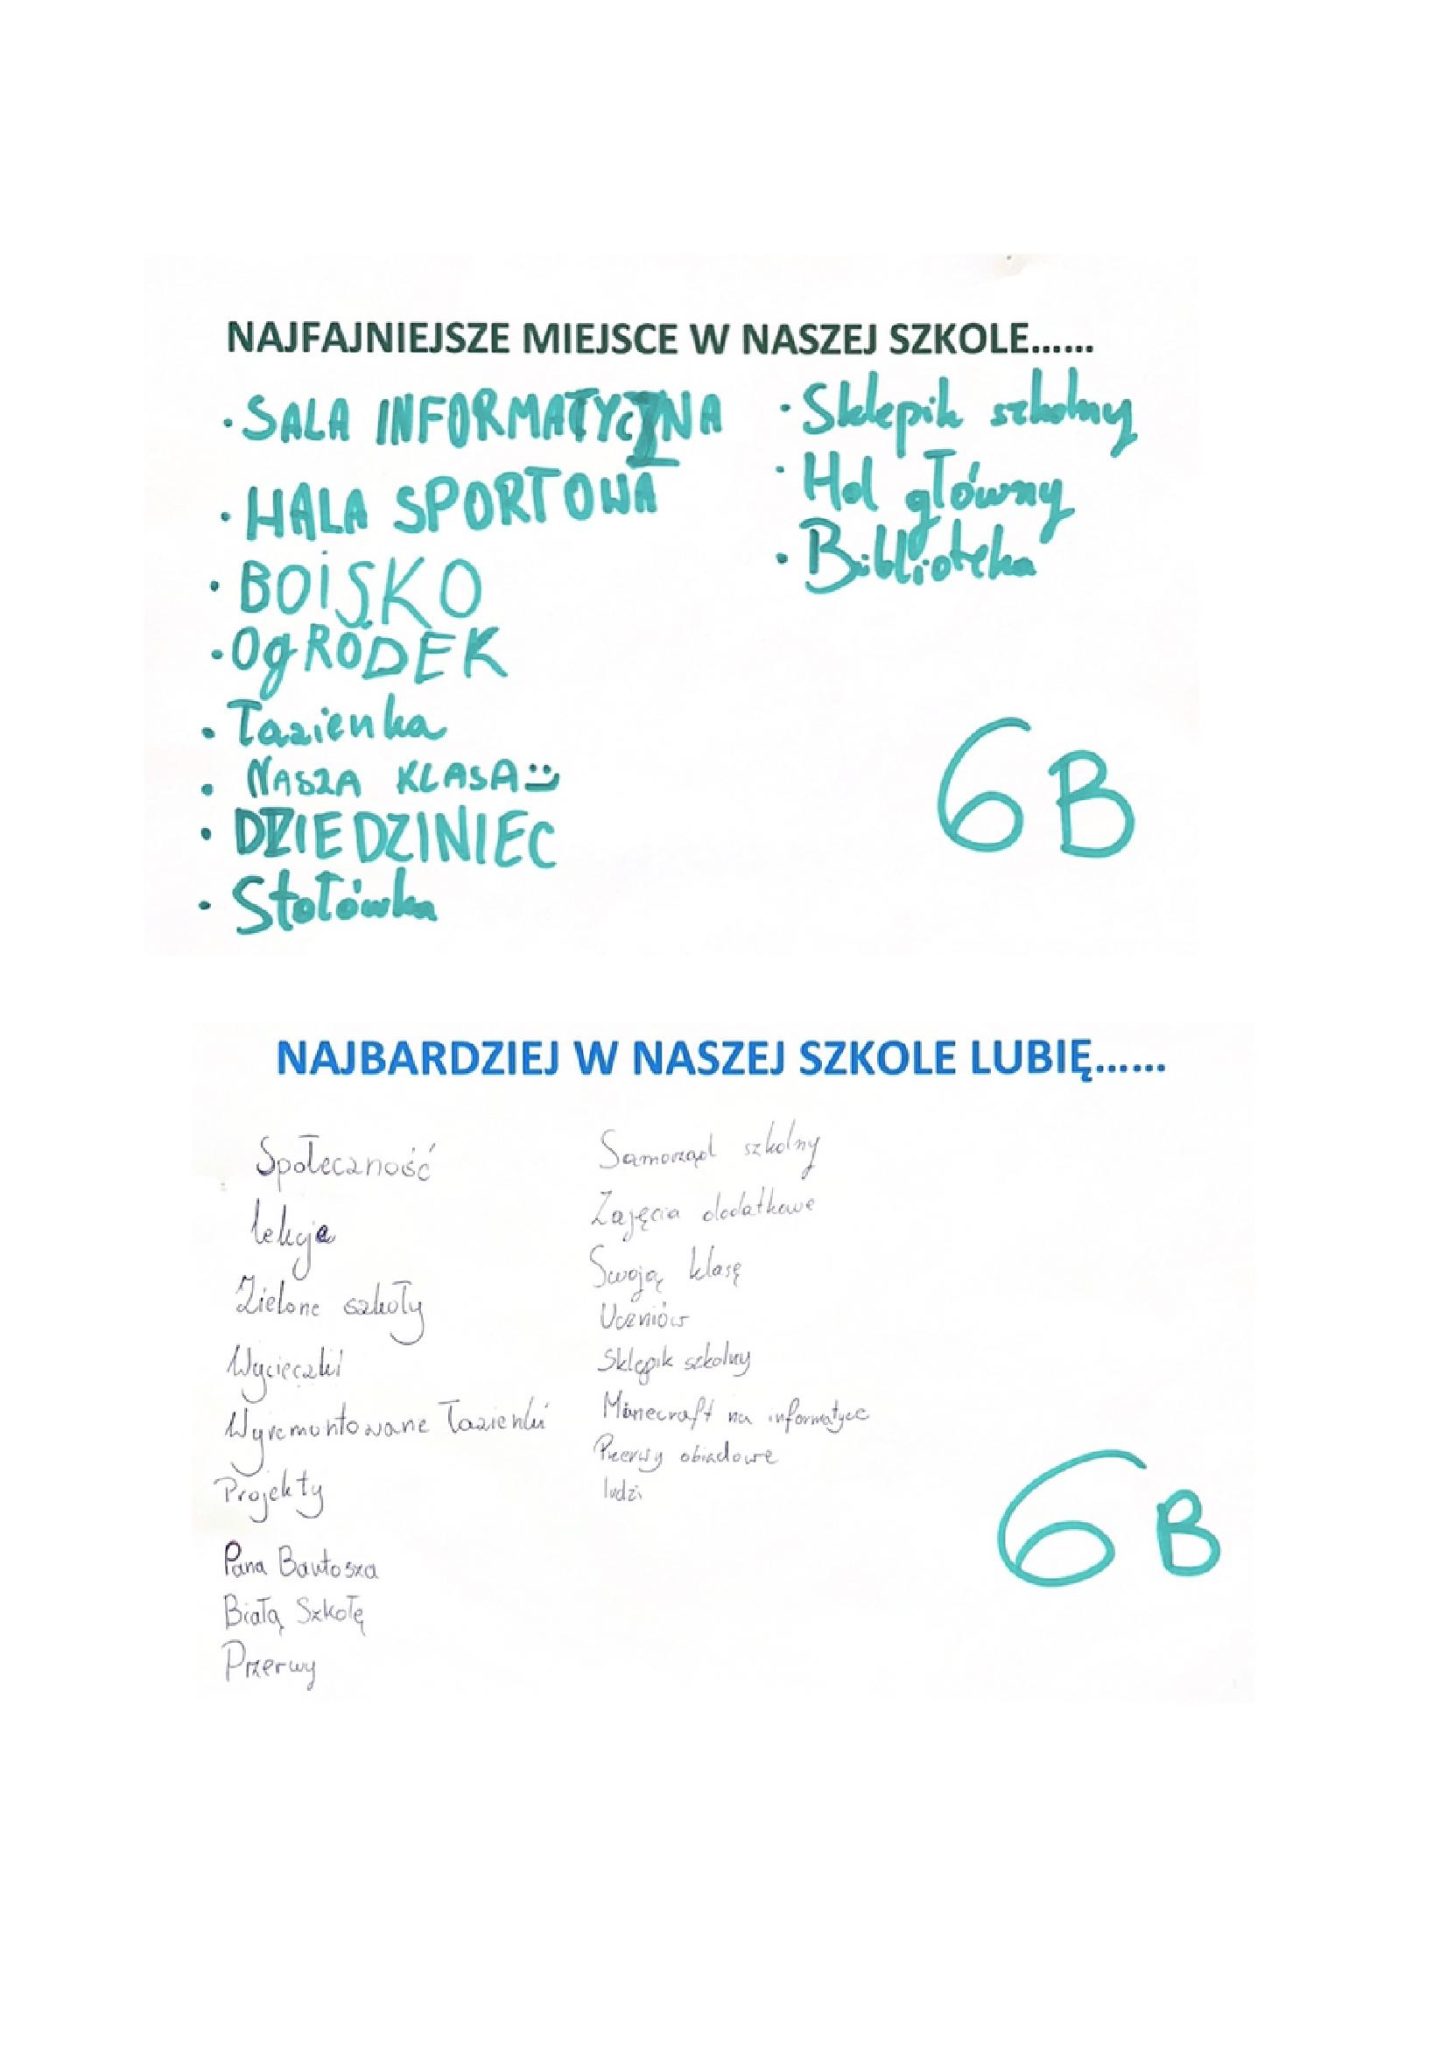 NAJFAJNIEJSZE MIEJSCE W NASZEJ SZKOLE......
· SALA INFORMATYCZNA
· HALA SPORTOWA
· BOISKO
· OgRÓDEK
· Łazienka
· NASZA KLASA :)
· DZIEDZINIEC
· Stołówka
· Sklepik szkolny
· Hol główny
· Biblioteka
6B
NAJBARDZIEJ W NASZEJ SZKOLE LUBIĘ......
Społeczność
lekcje
Zielone szkoły
Wycieczki
Wyremontowane Łazienki
Projekty
Pana Bartosza
Białą Szkołę
Przerwy
Samorząd szkolny
Zajęcia dodatkowe
Swoją klasę
Uczniów
Sklepik szkolny
Minecraft na informatyce
Przerwy obiadowe
ludzi
6B